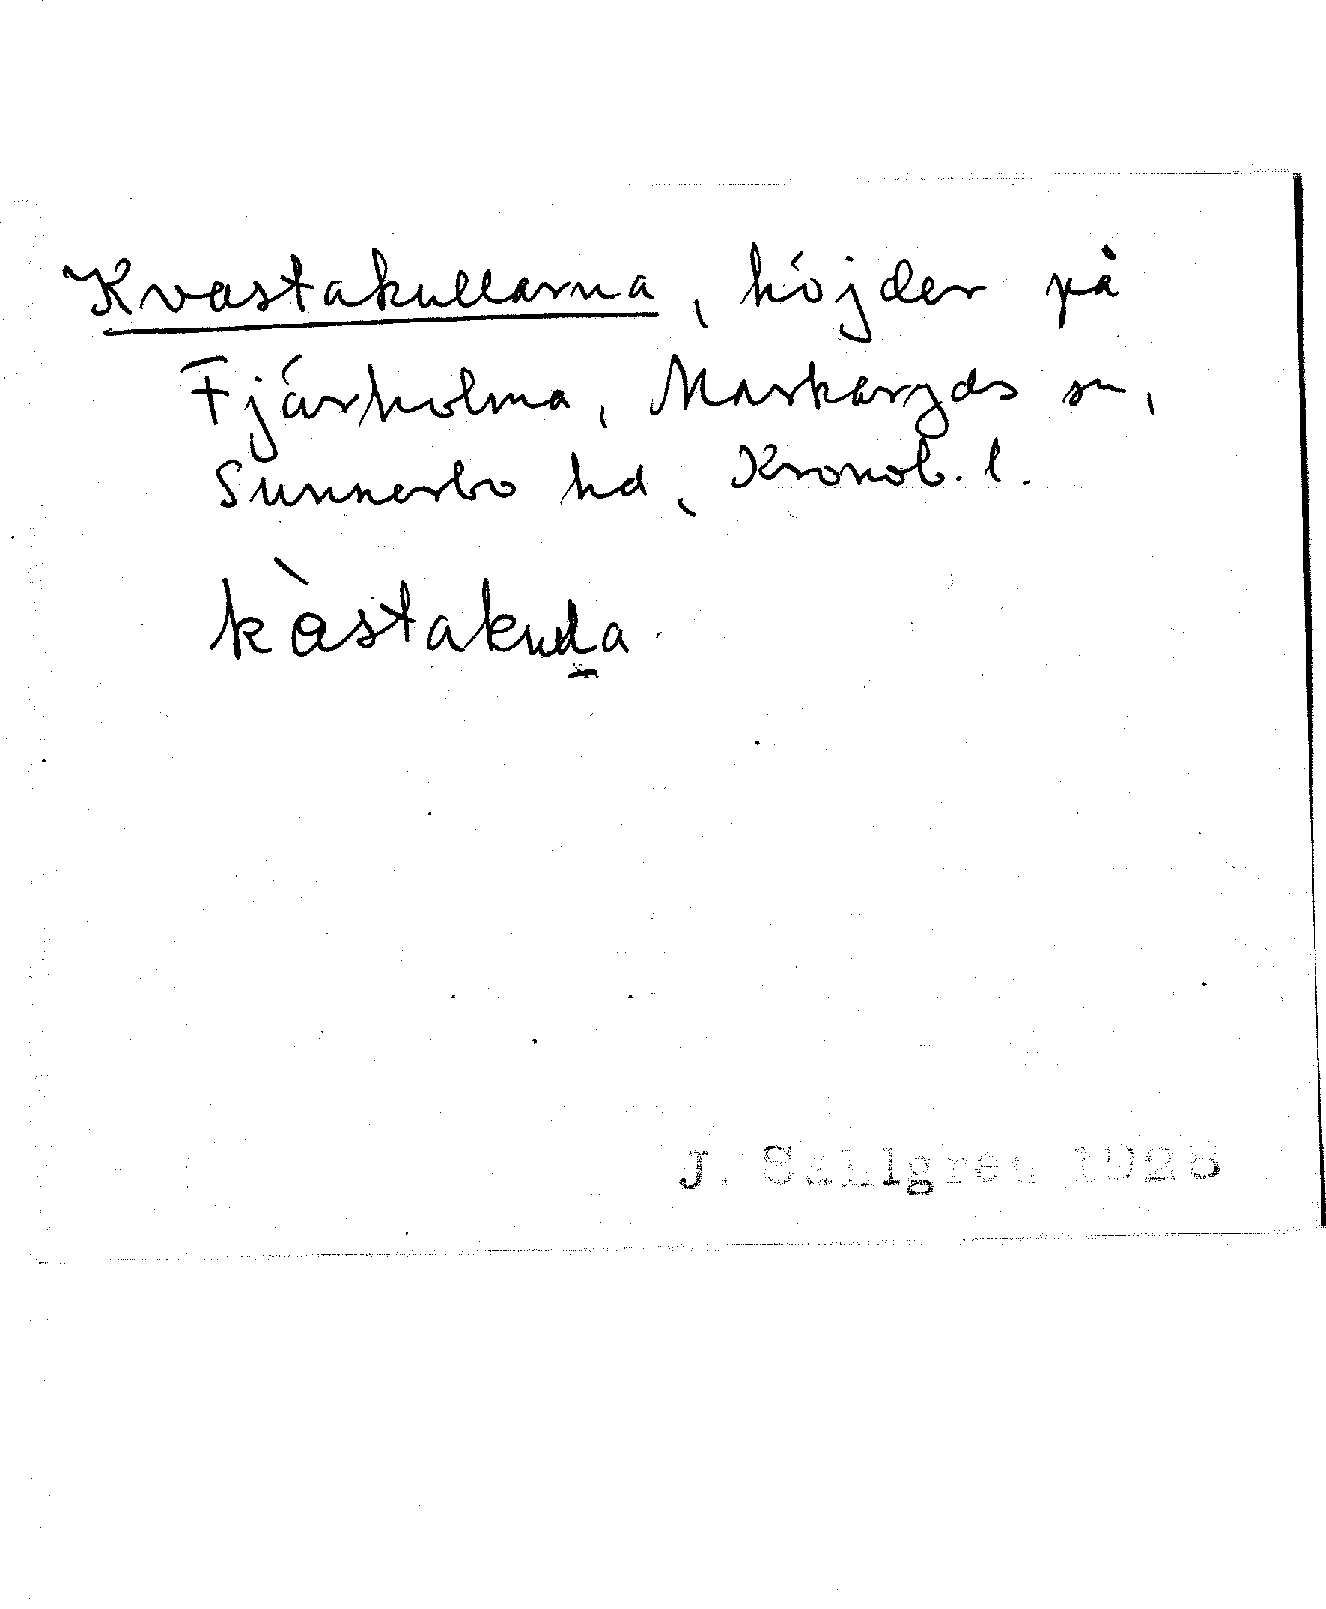 Kvastakullarna, höjder på
Fjärholma, Markaryds sn,
Sunnerbo hd, Kronob. l.
J. Sahlgren